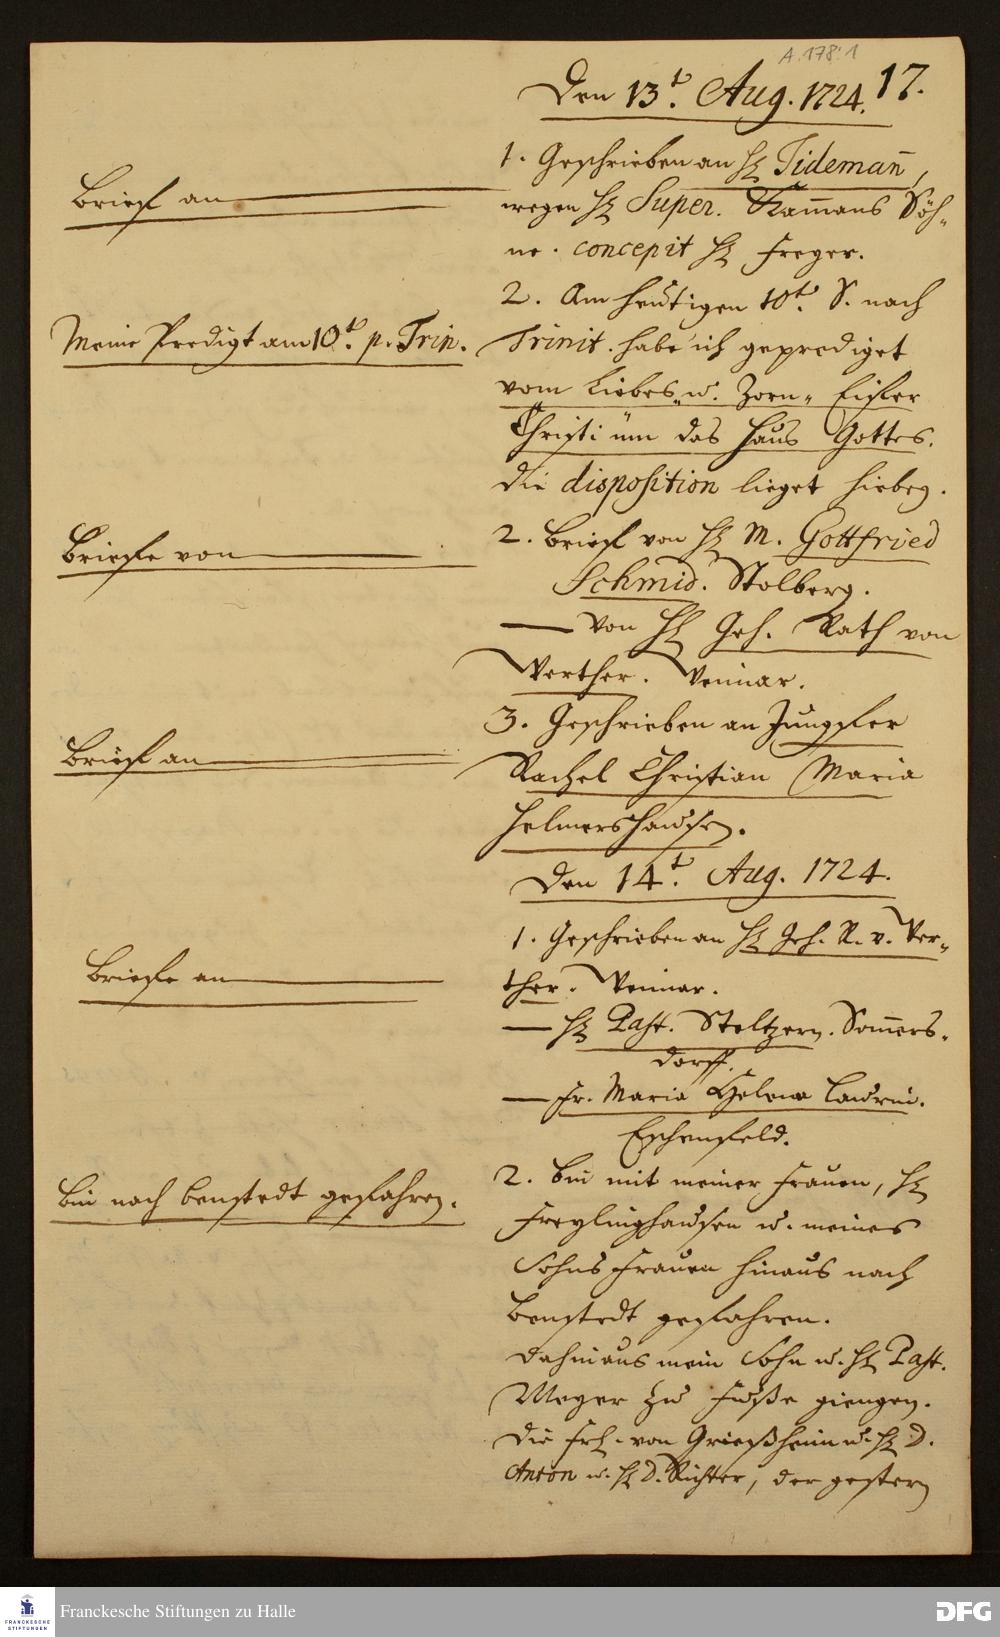 A.178:1
17.
Den 13t. Aug. 1724.
Brief an
1. Geschrieben an H. Tidemañ,
wegen H. Super. Kam̄ans Söh-
ne. concepit H. Freyer.
Meine Predigt am 10t. p. Trin.
2. Am heutigen 10t. S. nach
Trinit. habe ich geprediget
vom Liebes- u. Zorn- Eifer
Christi üm das Haus Gottes.
die disposition lieget hiebey.
Briefe von
2. Brief von H. M. Gottfried
Schmid. Stolberg.
— von H. Geh. Rath von
Werther. Weimar.
Brief an
3. Geschrieben an Jungfer
Rachel Christian Maria
Helmershausen.
Den 14t. Aug. 1724.
Briefe an
1. Geschrieben an H. Geh. R. v. Wer-
ther. Weimar.
— H. Past. Steltzern. Som̄ers-
dorff.
— Fr. Maria Helena Laurein.
Eschenfeld.
Bin nach Benstedt gefahren.
2. Bin mit meiner Frauen, H.
Freylinghausen u. meines
Sohns Frauen hinaus nach
Benstedt gefahren.
dahinaus mein Sohn u. H. Past.
Meyer zu Fuße giengen.
die Frl. von Grießheim u. H. D.
Anton u. H. D. Richter, der gestern
Franckesche Stiftungen zu Halle
FRANCKESCHE
STIFTUNGEN
DFG